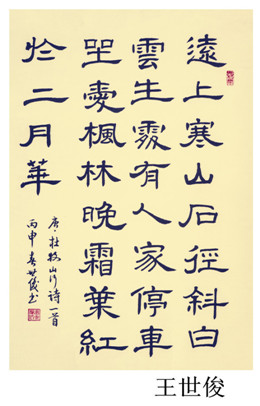 遠上寒山石徑斜白
雲生處有人家停車
坐愛楓林晚霜葉紅
於二月華
唐·杜牧山行诗一首
丙申春世俊书
王世俊